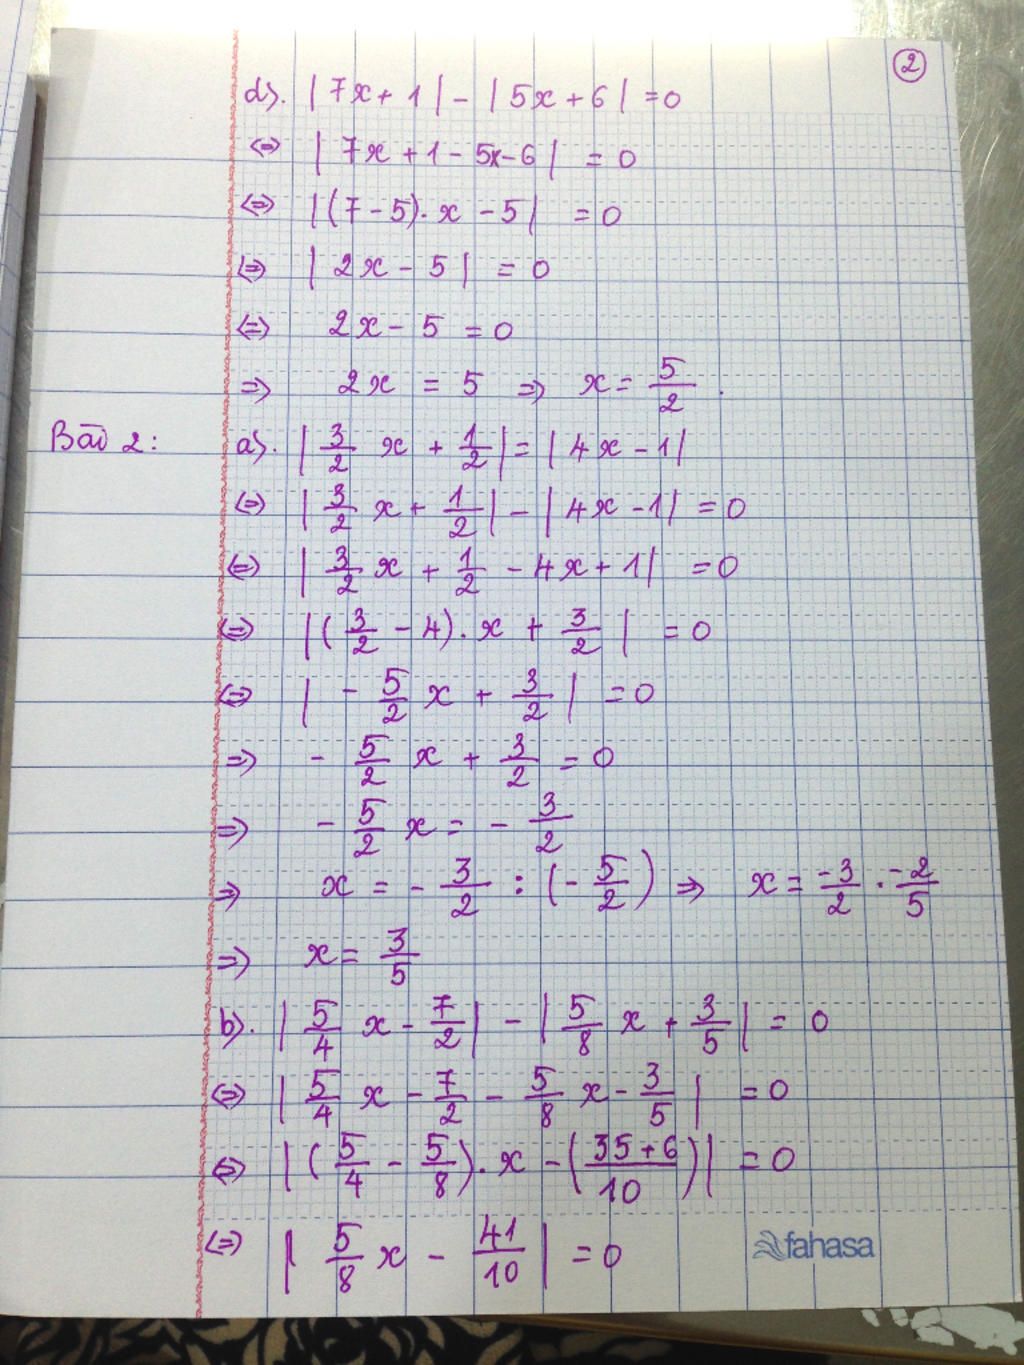 ②
d). |7x + 1| - |5x + 6| = 0
⇔ |7x + 1 - 5x - 6| = 0
⇔ |(7 - 5). x - 5| = 0
⇔ |2x - 5| = 0
⇔ 2x - 5 = 0
⇒ 2x = 5 ⇒ x = 5/2.
Bài 2: a). |3/2 x + 1/2| = |4x - 1|
⇔ |3/2 x + 1/2| - |4x - 1| = 0
⇔ |3/2 x + 1/2 - 4x + 1| = 0
⇔ |(3/2 - 4). x + 3/2| = 0
⇔ |- 5/2 x + 3/2| = 0
⇒ - 5/2 x + 3/2 = 0
⇒ - 5/2 x = - 3/2
⇒ x = - 3/2 : (- 5/2) ⇒ x = -3/2 . -2/5
⇒ x = 3/5
b). |5/4 x - 7/2| - |5/8 x + 3/5| = 0
⇔ |5/4 x - 7/2 - 5/8 x - 3/5| = 0
⇔ |(5/4 - 5/8). x - (35 + 6/10)| = 0
⇔ |5/8 x - 41/10| = 0
fahasa